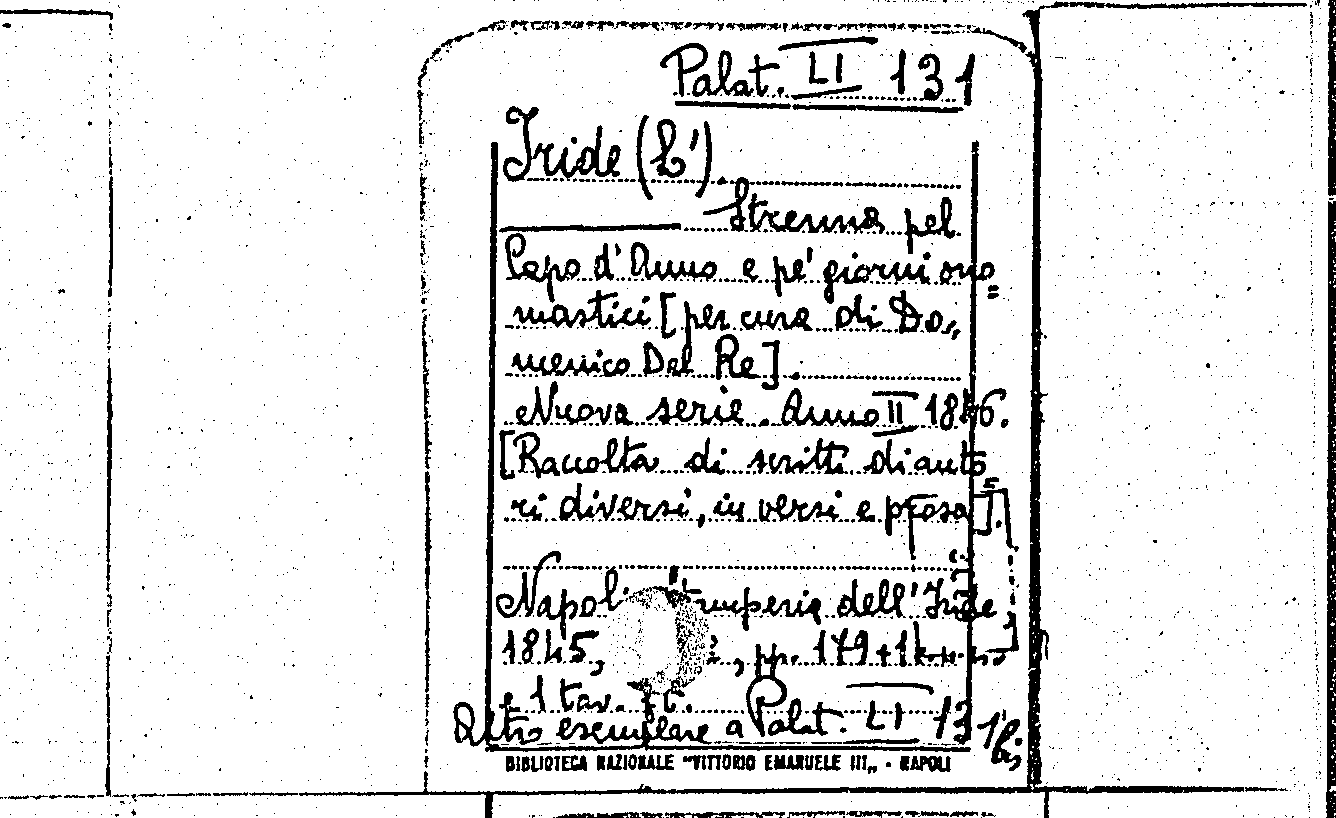 Palat. LI 131
Iride (L').
Strenna pel
Capo d'Anno e pe' giorni ono=
mastici [per cura di Do„
menico Del Re].
Nuova serie. Anno II 1846.
[Raccolta di scritti di auto=
ri diversi, in versi e prosa].
Napoli dell'Iride
1845, , pp. 179+1
e 1 tav. f.t.
Altro esemplare a Palat. LI 131 bis
BIBLIOTECA NAZIONALE "VITTORIO EMANUELE III„ - NAPOLI